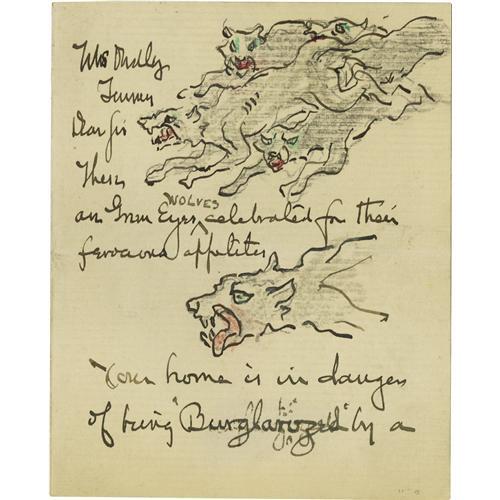 Mr Dudley
Tenney
Dear Sir
These
are Green Eyed WOLVES celebrated for their
ferocious appetites
Your home is in danger
of being "Burglarized" by a